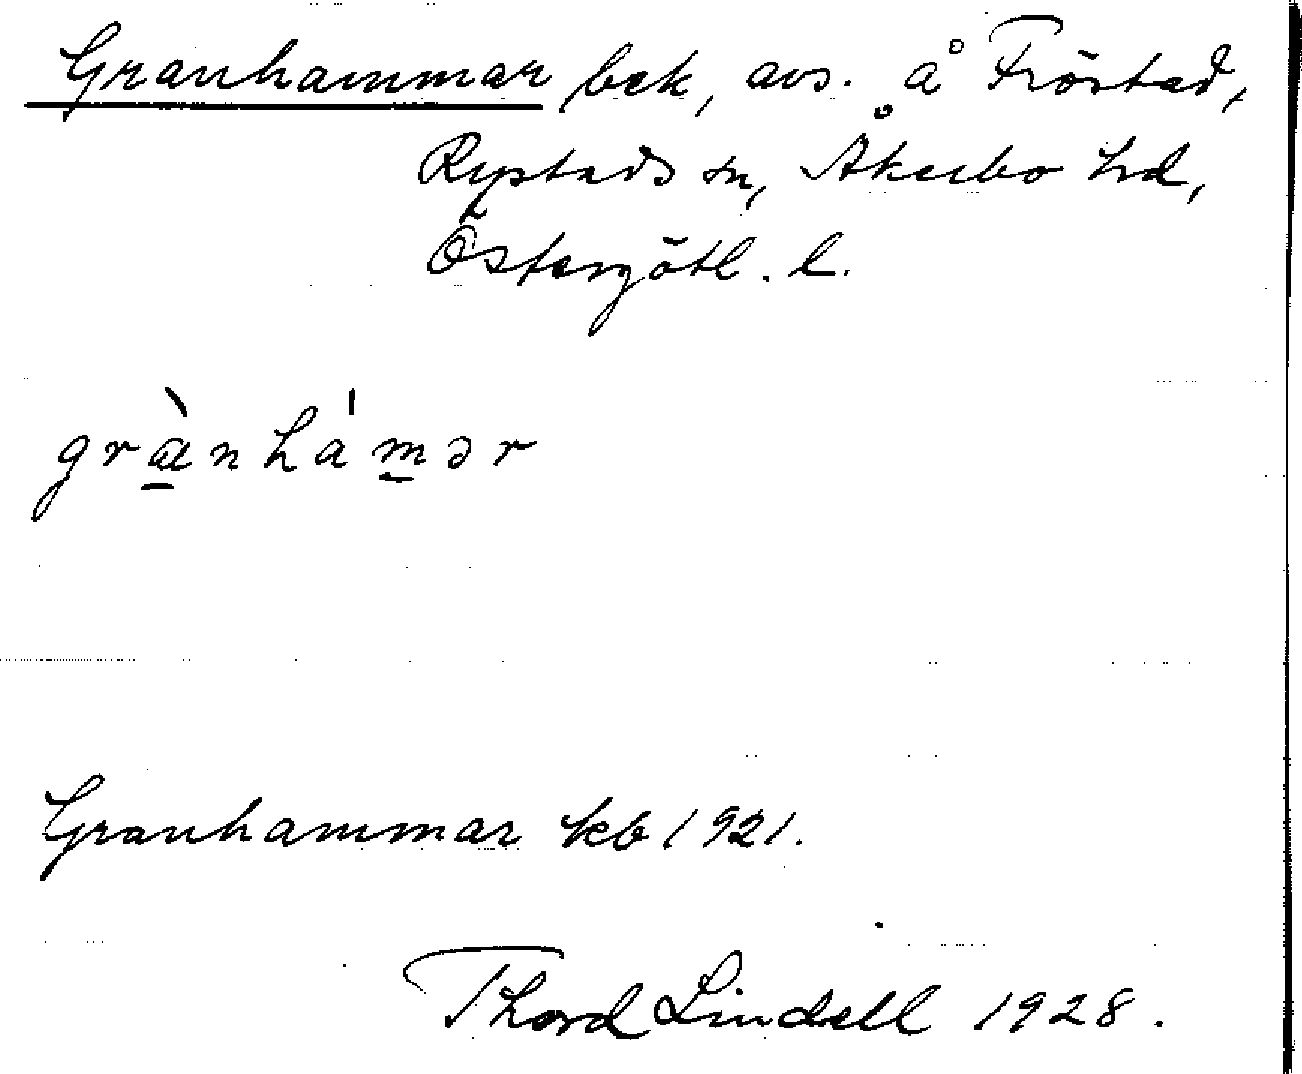 Granhammar bek, avs. å Fröstad,
Rystads sn, Åkerbo hd,
Östergötl. l.
grànhámər
Granhammar kb 1921.
Thord Lindell 1928.